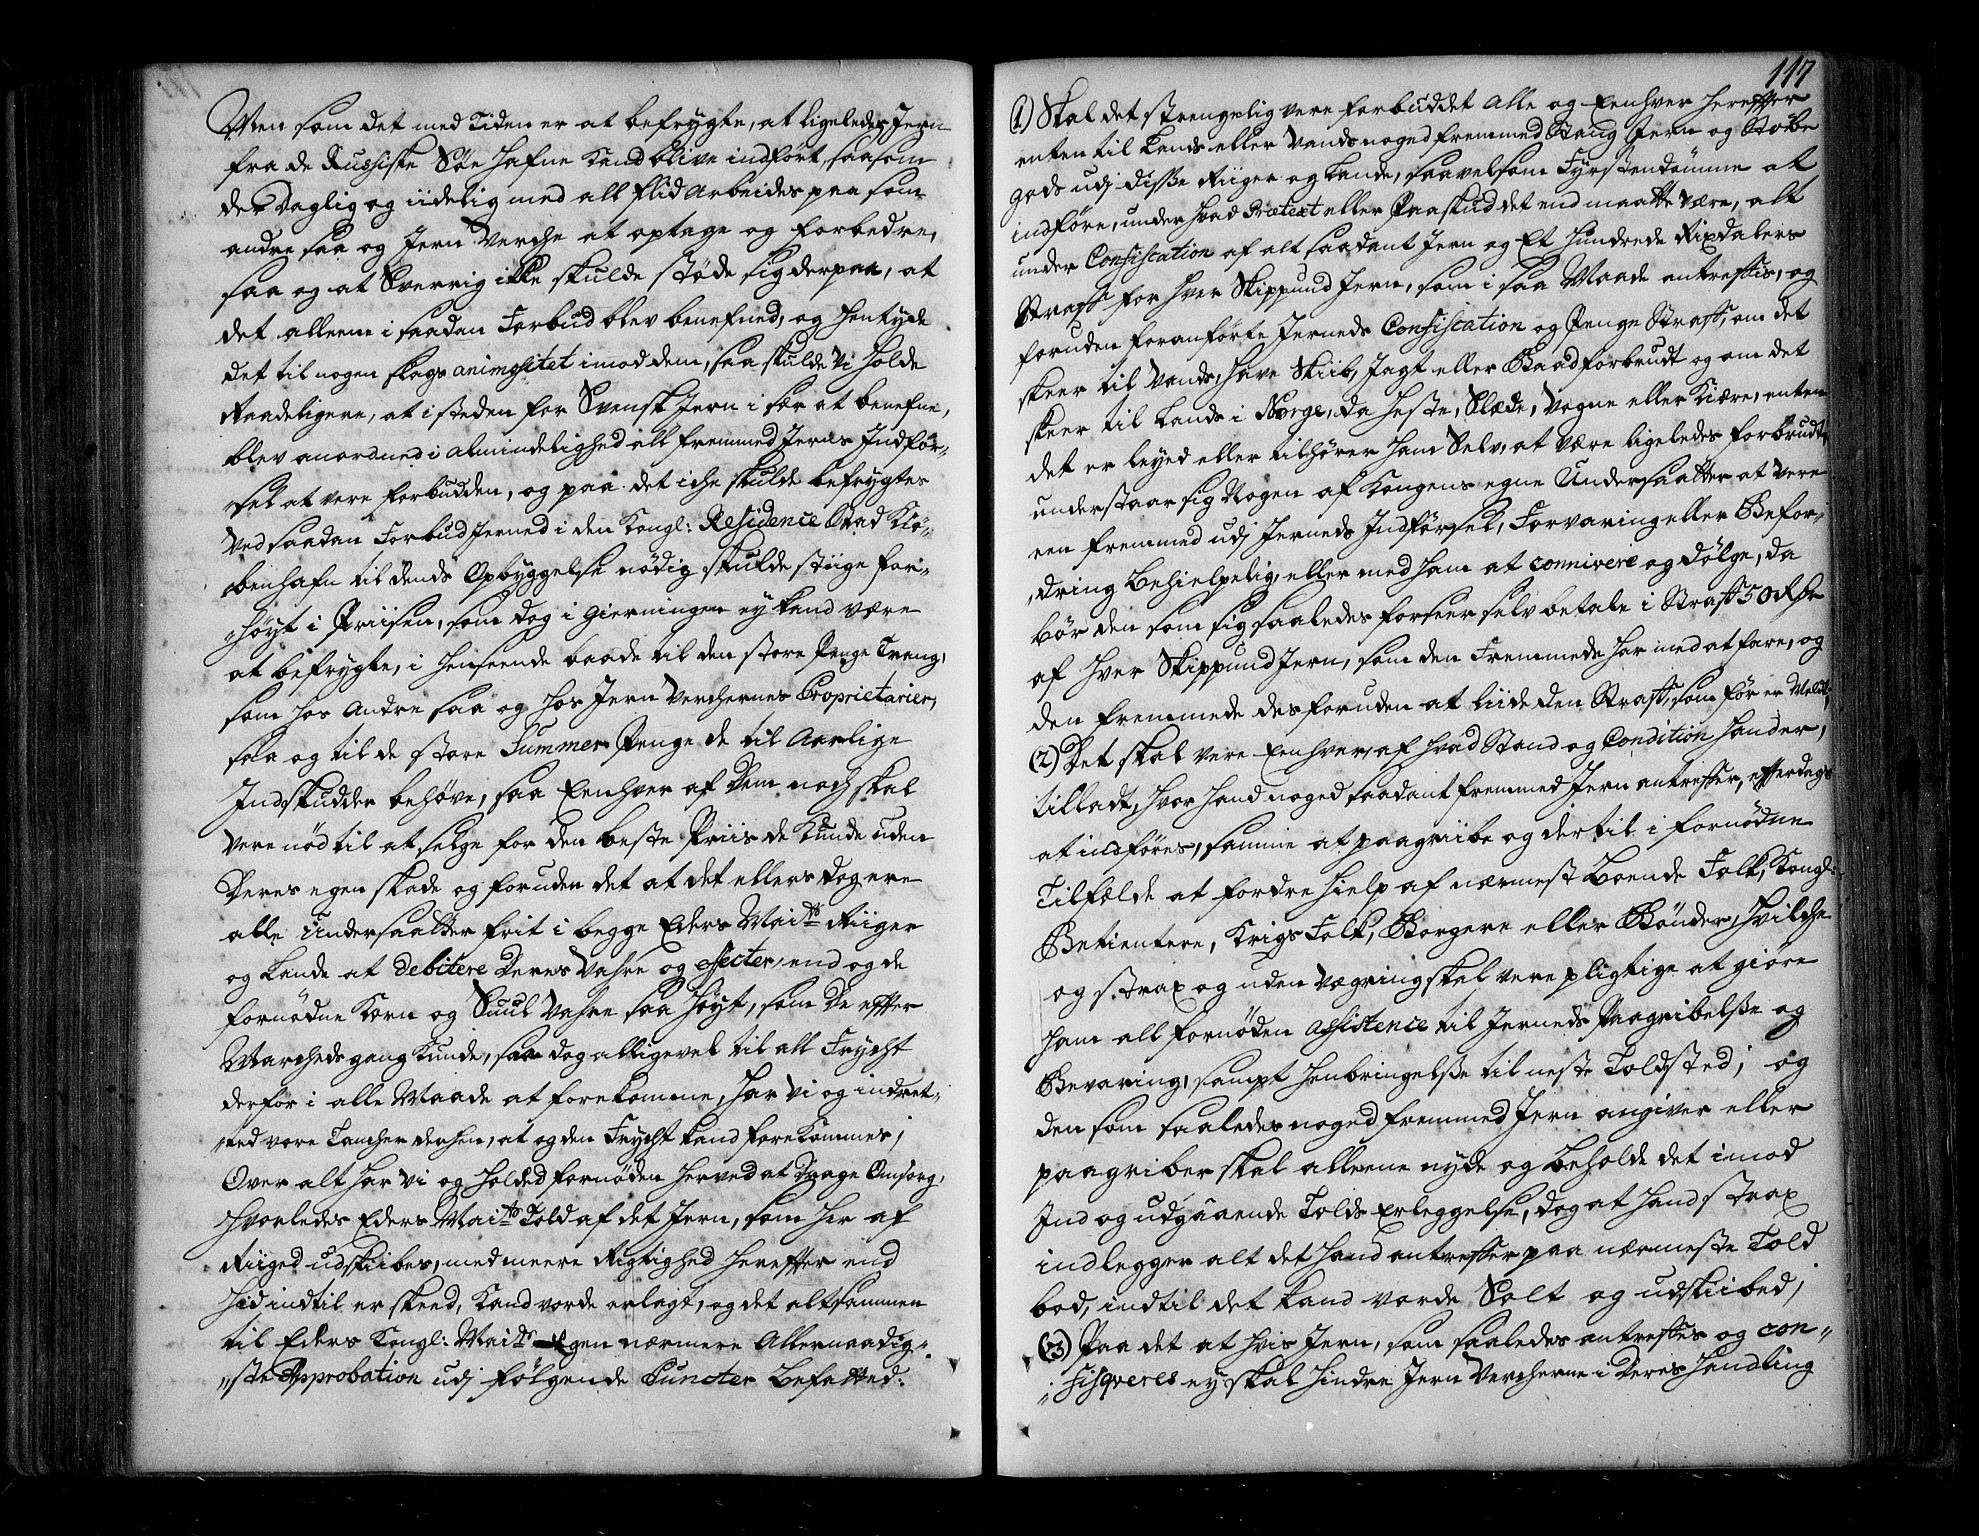 Men som det med Tiden er at befrygte, at ligeledes Jern
fra de Russiske Söe Hafne Kand blive indfört, saasom
der Daglig og iidelig med all flid Arbeides paa som
andre saa og Jern Verche at optage og forbedre,
saa og at Sverrig ikke skulde støde sig derpaa, at
det alleene i saadan Forbud blev benefned, og hentyde
det til nogen slags animositet imod dem, saa skulde Vi holde
Raadeligere, at i steden for Svensk Jern i sær at benefne,
blev anordned i Almindelighed all fremmed Jerns Indför-
sel at vere forbudden, og paa det iche skulde befrygtes
ved saadan Forbud Jerned i den Kongl: Residence Stad Kiö-
benhafn til dends Opbyggelse nödig skulde stiige for-
höyt i Priisen, som dog i gierningen ey kand være
at befrygte, i henseende baade til den store Penge Trang,
som hos Andre saa og hos Jern Verchernes Proprietarier,
saa og til de store Summer Penge de til Aarlige
Indskudder behøve, saa Eenhver af Dem noch skal
vere nød til at selge for den beste Priis de Kunde uden
Deres egen skade og foruden det at det ellers dog ere
alle Undersaatter frit i begge Eders Maits Riiger
og Lande at debitere Deres Vahre og effecter, end og de
fornødne Korn og Suul Vahre saa høyt, som De effter
Marcheds gang Kunde, saa dog alligevel til all Frycht
derfor i alle Maade at forekomme, har Vi og indret-
ted vore Tancher derhen, at og den Frycht kand foreKommes;
Over alt har Vi og holded fornøden herved at drage Omsorg,
hvorledes Eders Maits Told af det Jern, som her af
Riiged udskibes, med meere Rigtighed hereffter end
hid indtil er skeed, Kand vorde erlagt, og det altsammen
til Eders Kongl: Maits Egen nærmere Allernaadig-
ste Approbation udj følgende Puncter Befatted:
117
(1) Skal det strengelig vere forbuddet Alle og Eenhver hereffter
enten til Lands eller Vands noged fremmed Stang Jern og Støbe
gods udj disse Riiger og Lande, saavelsom Fyrstendömme at
indføre, under hvad Prætext eller Paaskud det end maatte være, alt
under Confiscation af alt saadant Jern og Et Hundrede Rixdalers
Straff for hver Skippund Jern, som i saa Maade antreffis, og
foruden foranförte Jerneds Confiscation og Penge Straff, om det
skeer til Vands, have Skiib, Jagt eller Baad forbrudt og om det
skeer til Lands i Norge, da Heste, Slæde, Vogne eller Kiære, enten
det er leyed eller tilhører ham Selv, at være ligeledes forbrudt,
understaar sig Nogen af Kongens egne Undersaatter at vere
een fremmed udj Jerneds Indförsel, Forvaring eller Befor-
dring Behielpelig, eller med ham at connivere og dölge, da
bör den som sig saaledes forseer selv betale i Straff 50 Rdr
af hver Skippund Jern, som den Fremmede har med at fare, og
den fremmede desforuden at liide den Straff, som för er Meldt,
(2) Det skal vere Eenhver, af hvad Stand og Condition hand er,
tilladt, hvor hand noged saadant fremmed Jern antreffer, effterdags
at indföres, samme at paagriibe og dertil i fornödne
Tilfælde at fordre hielp af nærmest Boende Folk, Kongl:
Betientere, Krigs Folk, Borgere eller Bönder, hvilche
og strax og uden Vægring skal vere pligtige at giöre
ham all fornöden Assistence til Jerneds Paagribelse og
Bevaring, sampt henbringelse til neste Toldsted; og
den som saaledes noged fremmed Jern angiver eller
paagriber skal alleene nyde og beholde det imod
Ind og udgaaende Tolds Erleggelse, dog at hand strax
indlegger alt det hand antreffer paa nærmeste Told
bod, indtil det kand vorde Solt og udskiibed;
(3) Paa det at hvis Jern, som saaledes antreffes og con-
fisqveres ey skal hindre Jern Vercherne i Deres Handling